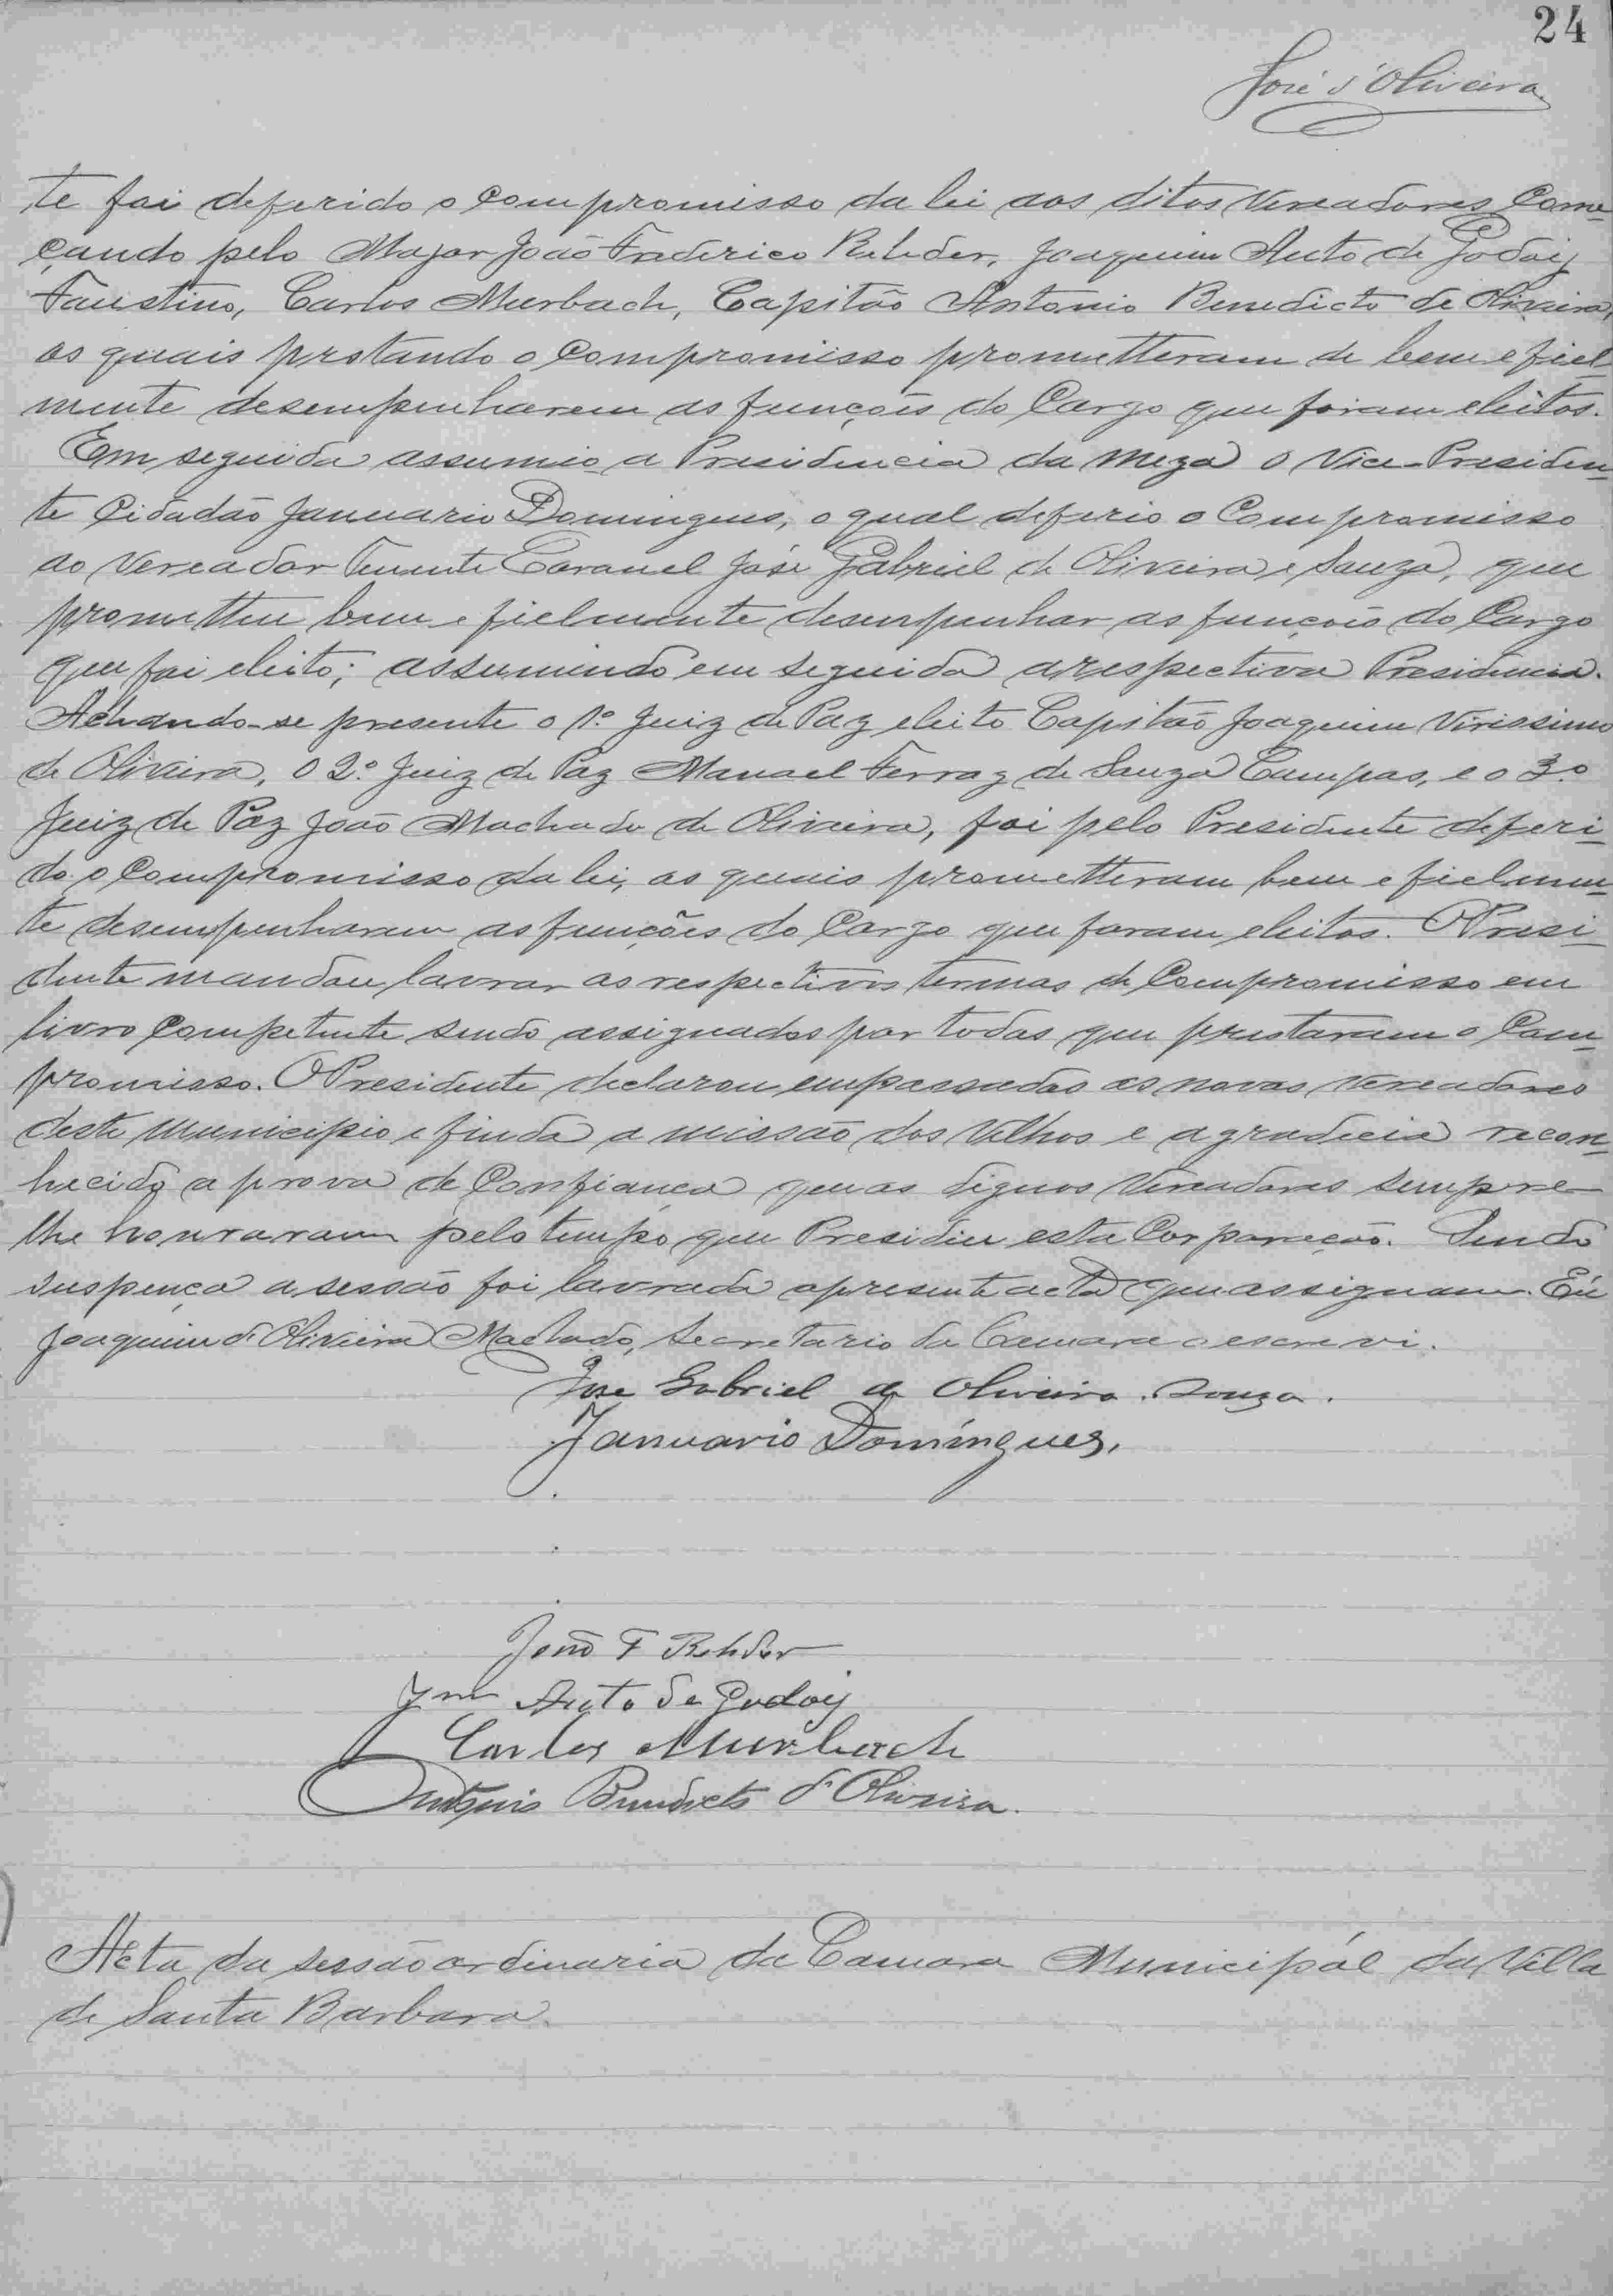 24
José d'Oliveira
te foi deferido o Compromisso da lei aos ditos Vereadores, Come-
çando pelo Major João Frederico Rehder, Joaquim Aucto de Godoy
Faustino, Carlos Murbach, Capitão Antonio Benedicto de Oliveira,
os quais prstando o Compromisso prometteram de bem e fiel-
mente desempenharem as funçoîs do Cargo que foram eleitos.
Em seguida assumio a Presidencia da meza o Vice-Presiden-
te Cidadão Januario Domingues, o qual deferio o Compromisso
ao Vereador Tenente Coronel José Gabriel de Oliveira e Souza, que
prometteu bem e fielmente desempenhar as funçoîs do Cargo
que foi eleito; assumindo em seguida a respectiva Presidencia.
Achando-se presente o 1º Juiz de Paz eleito Capitão Joaquim Virissimo
de Oliveira, o 2º Juiz de Paz Manoel Ferraz de Souza Campos, e o 3º
Juiz de Paz João Machado de Oliveira, foi pelo Presidente deferi-
do o Compromisso da lei, os quais prometteram bem e fielmen-
te desempenharem as funções do Cargo que foram eleitos. O Presi-
dente mandou lavrar os respectivos termos de Compromisso em
livro Competente sendo assignados por todos que prestaram o Com-
promisso. O Presidente declarou empossados os novos vereadores
deste Municipio e finda a missão dos Velhos e agradecia recon-
hecido a prova de Confiança que os dignos Vereadores sempre
lhe honraram pelo tempo que Presidiu esta Corporação. Sendo
suspença a sessão foi lavrada a presente acta que assignam. Eu
Joaquim de Oliveira Machado, Secretario da Camara o escrevi.
José Gabriel de Oliveira Souza.
Januario Domingues.
João F Rehder
Jm Aucto de Godoy
Carlos Murbach
Antonio Benedicto d'Oliveira.
Acta da sessão ordinaria da Camara Municipal da Villa
de Santa Barbara.